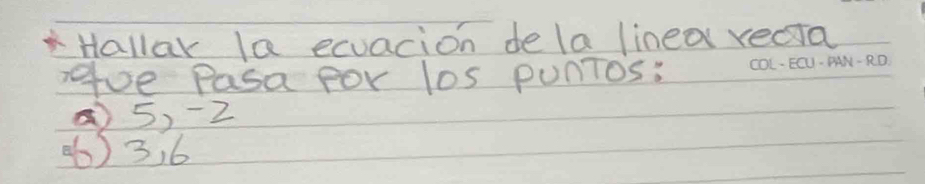 * Hallar la ecuación de la linea recta
que Pasa por los punTos:
COL-ECU-PAN-RD
a) 5,-2
b) 3,6